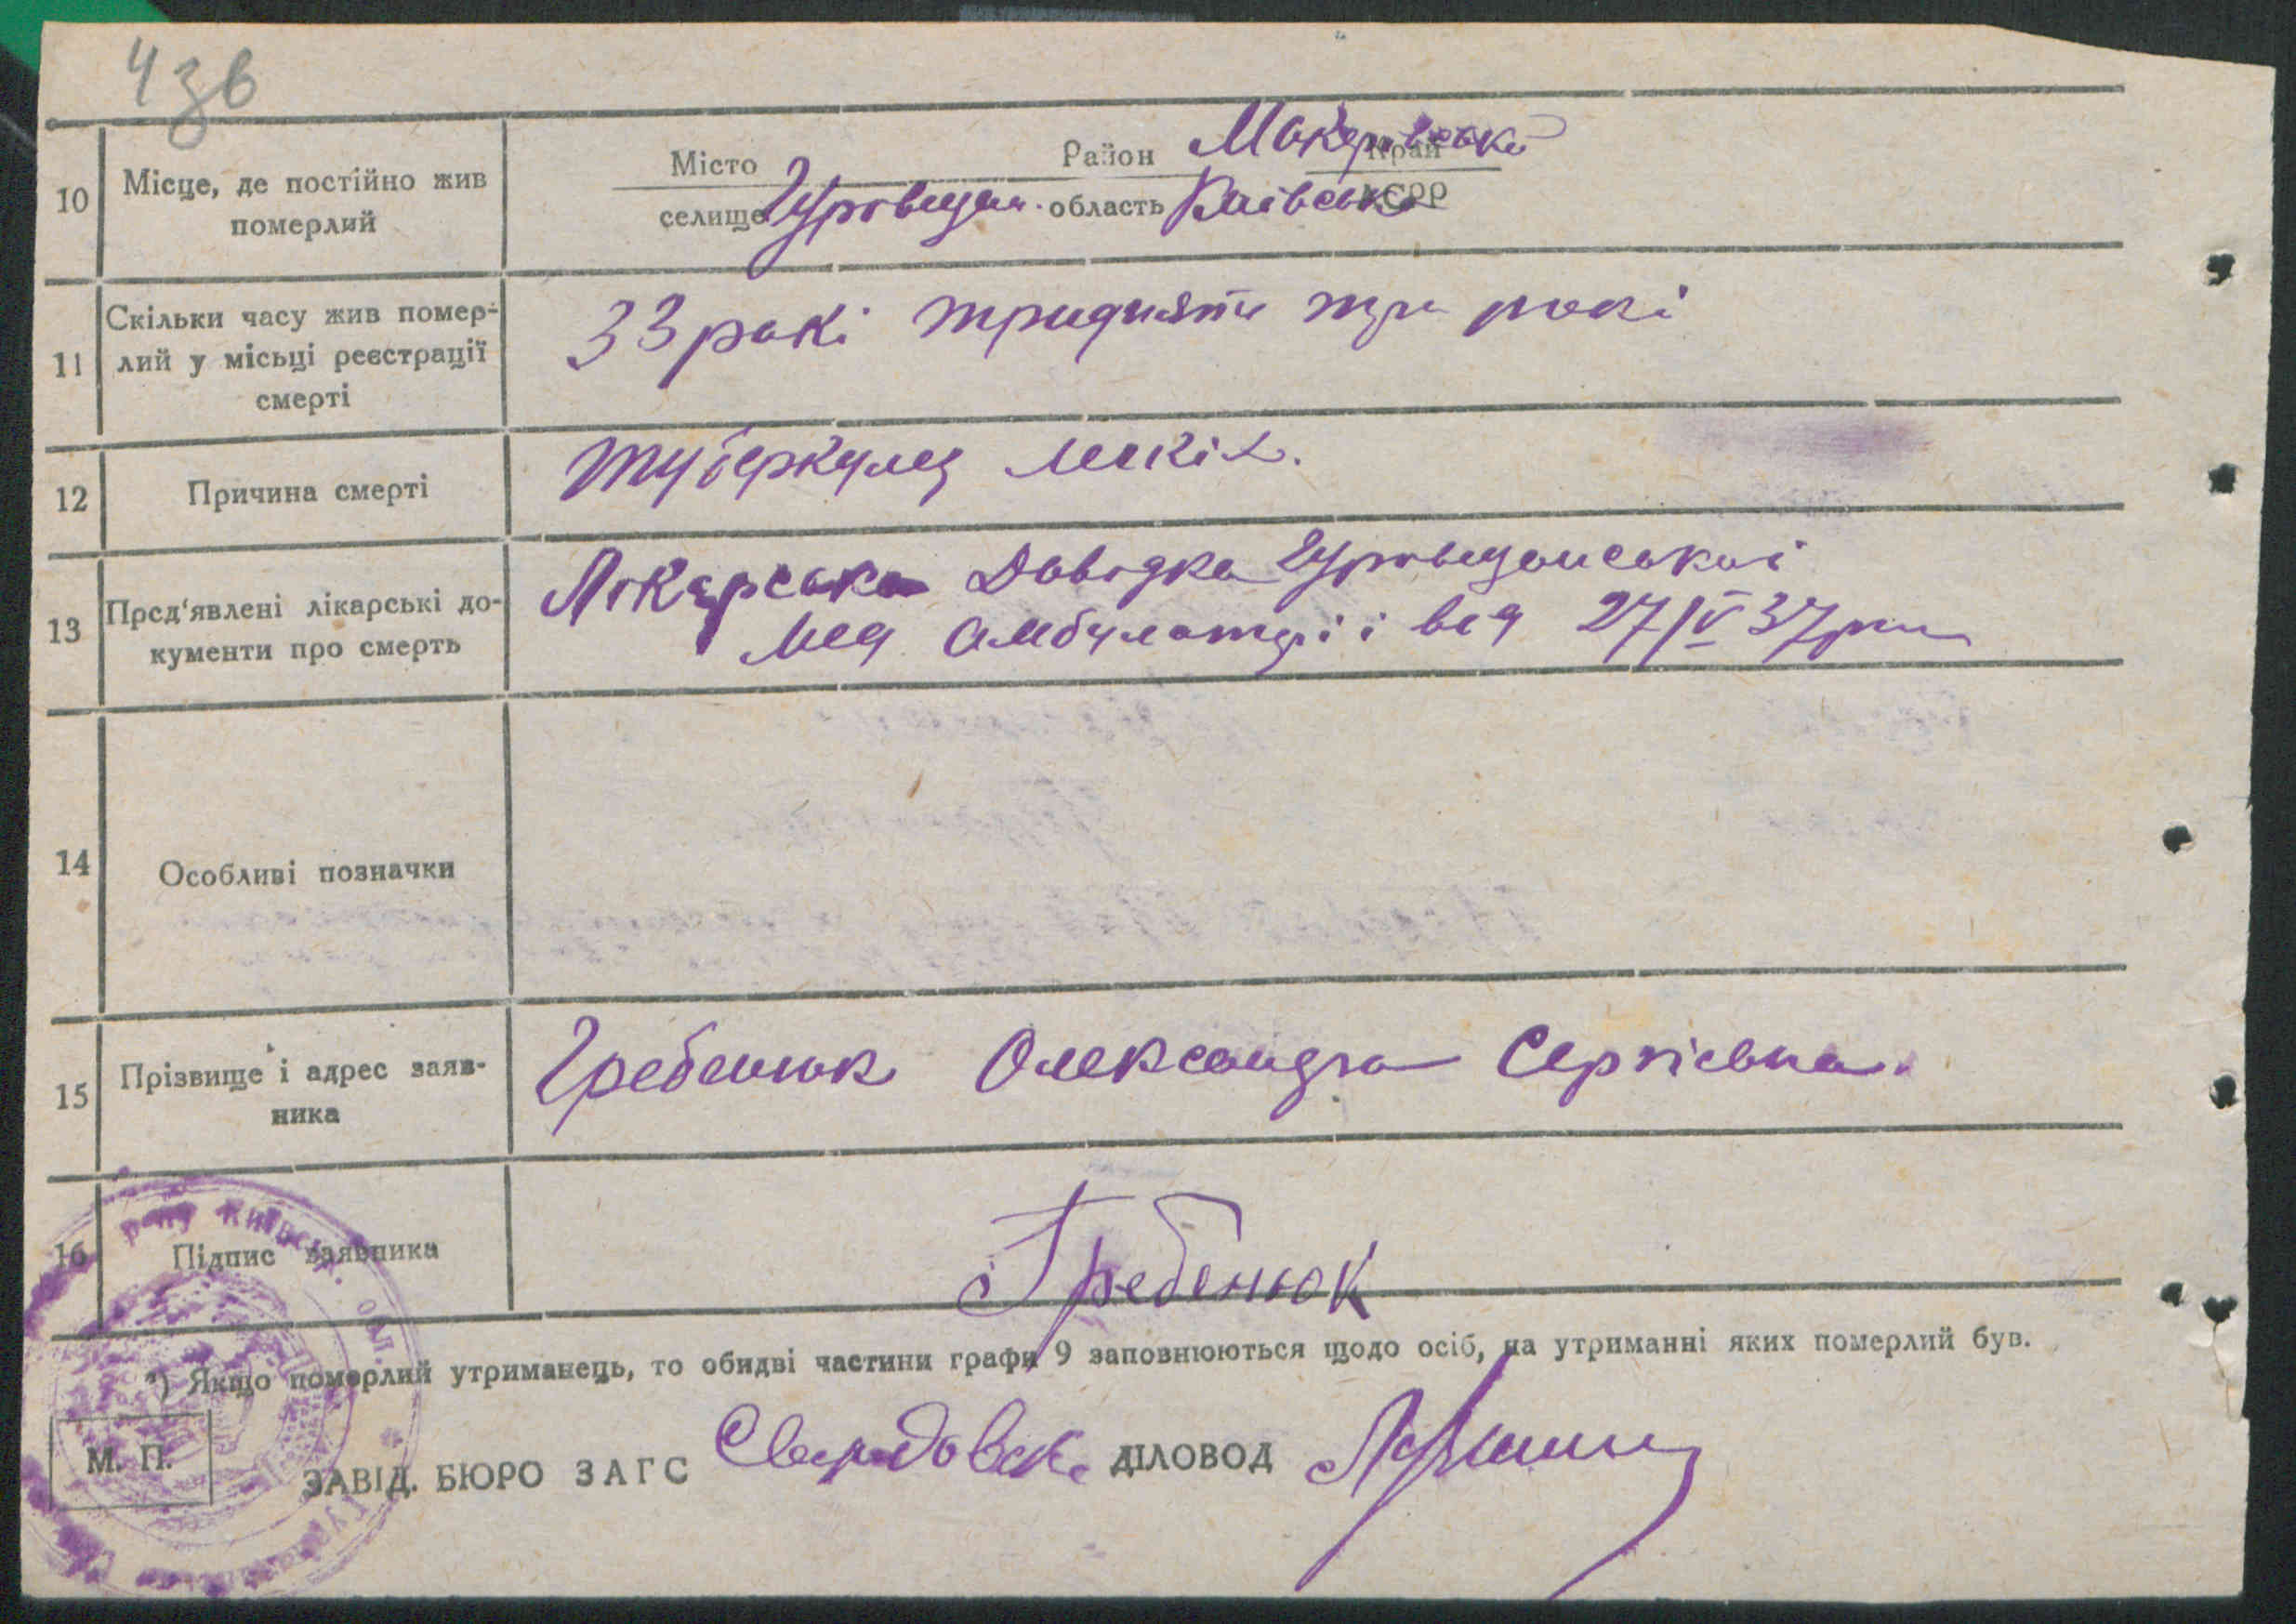 4зв
10 Місце, де постійно жив померлий
Місто Район Макарівськ Край
селище Гуровщина область Київськ АСРР
11 Скільки часу жив помер-
лий у місьці реєстрації
смерті
33 рокі тридцять три рокі
12 Причина смерті
туберкулез легкіх.
13 Пред'явлені лікарські до-
кументи про смерть
Лікарська Довідка Гуровщанської
мед амбулаторіі від 27/IV 37 року
14 Особливі позначки
15 Прізвище і адрес заяв-
ника
Гребенюк Олександра Сергієвна.
16 Підпис заявника
Гребенюк
*) Якщо померлий утриманець, то обидві частини графи 9 заповнюються щодо осіб, на утриманні яких померлий був.
М. П.
ЗАВІД. БЮРО ЗАГС ДІЛОВОД